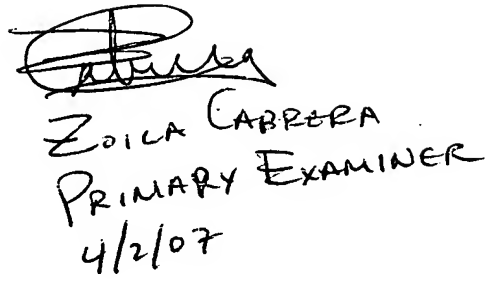 ZOILA CABRERA
PRIMARY EXAMINER
4/2/07